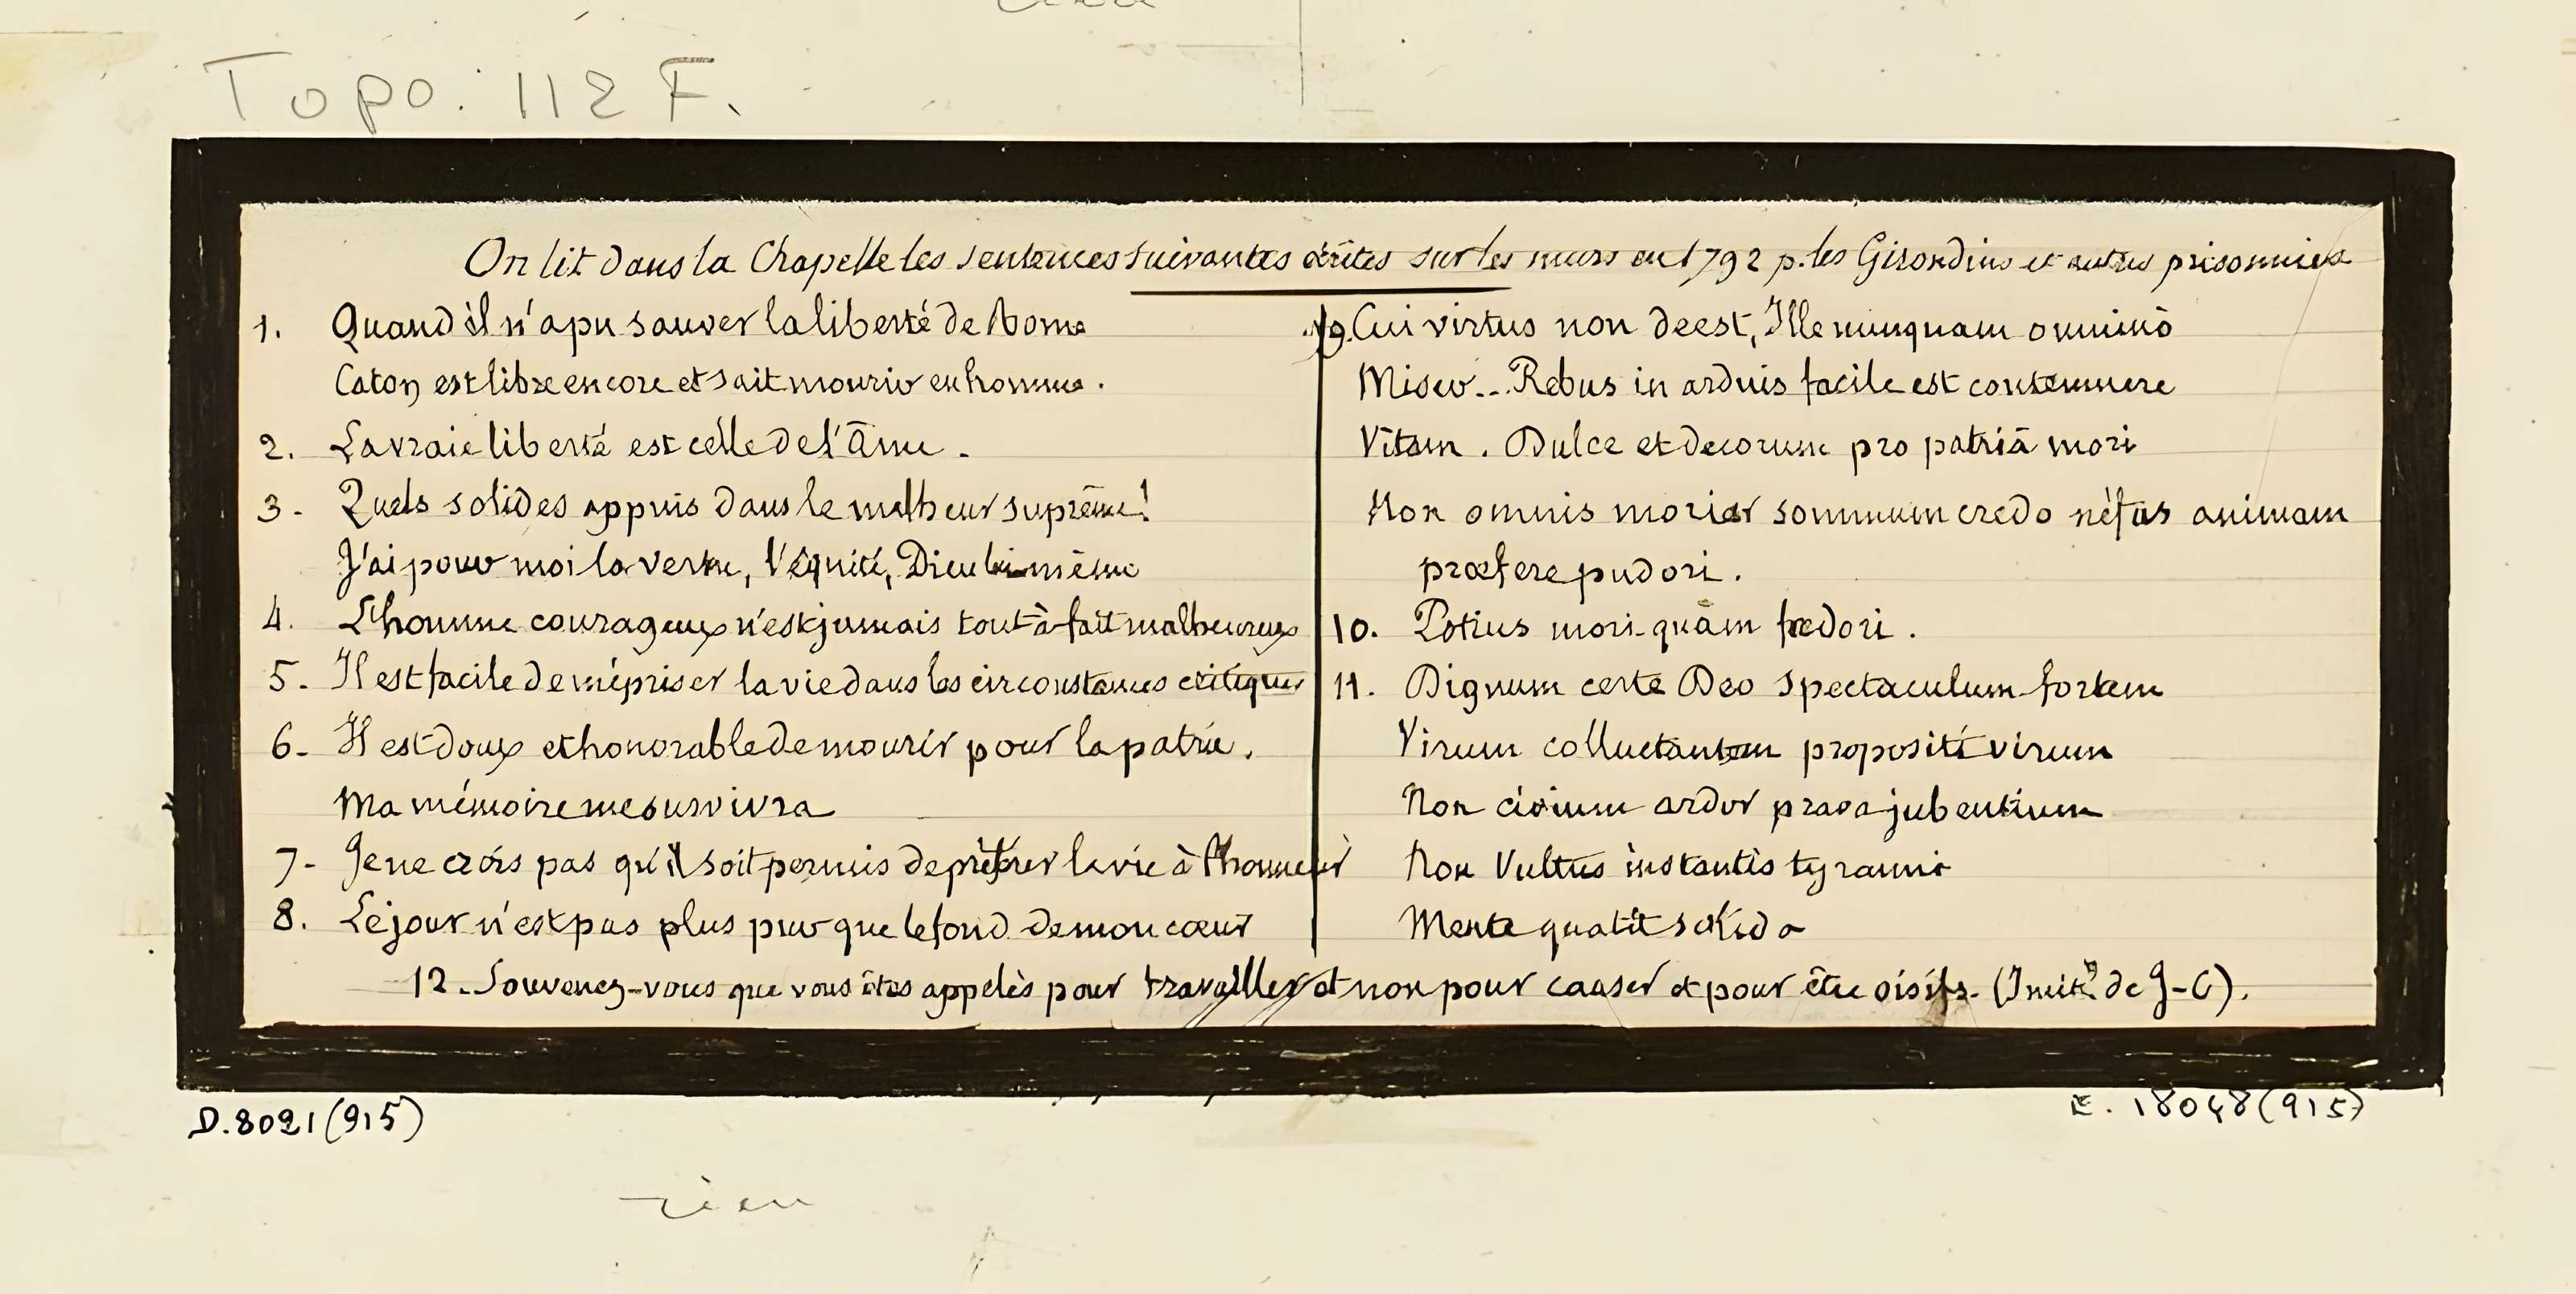 Topo. 112 F.
On lit dans la Chapelle les sentences suivantes écrites sur les murs en 1792 p. les Girondins et autres prisonniers
1. Quand il n'a pu sauver la liberté de Rome
Caton est libre encore et sait mourir en homme.
2. La vraie liberté est celle de l'Âme.
3. Quels solides appuis dans le malheur suprême!
J'ai pour moi la vertu, l'équité, Dieu lui-même
4. L'homme courageux n'est jamais tout-à-fait malheureux
5. Il est facile de mépriser la vie dans les circonstances critiques
6. Il est doux et honorable de mourir pour la patrie.
Ma mémoire me survivra
7. Je ne crois pas qu'il soit permis de préférer la vie à l'honneur
8. Le jour n'est pas plus pur que le fond de mon cœur
9. Cui virtus non deest, Ille nunquam omninò
Miser... Rebus in arduis facile est contemnere
Vitam. Dulce et decorum pro patriâ mori
Non omnis moriar summum credo nefas animam
præfere pudori.
10. Potius mori quàm fœdori.
11. Dignum certe Deo spectaculum fortem
Virum colluctantem propositi virum
Non civium ardor prava jubentium
Non Vultus instantis tyranni
Mente quatit solida
12. Souvenez-vous que vous êtes appelés pour travailler et non pour causer et pour être oisifs. (Imit.n de J-C).
D.8021(915)
E.18048(915)
rien